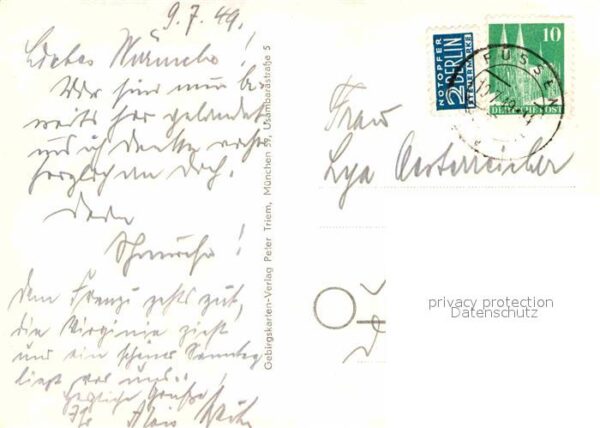 9.7.49.
Liebes
Wir sind nun be-
reits hier gelandet
und ich denke recht
herzlich an Dich.
Deine
Dem Franzi gehts gut,
die Virginia zieht
und ein schöner Sonntag
liegt vor uns.
Herzliche Grüße
Ihr Alois
Gebirgskarten-Verlag Peter Triem, München 59, Usambarastraße 5
NOTOPFER
2 BERLIN
STEUERMARKE
10
DEUTSCHE POST
FÜSSEN
Frau
Lya Oesterreicher
privacy protection
Datenschutz